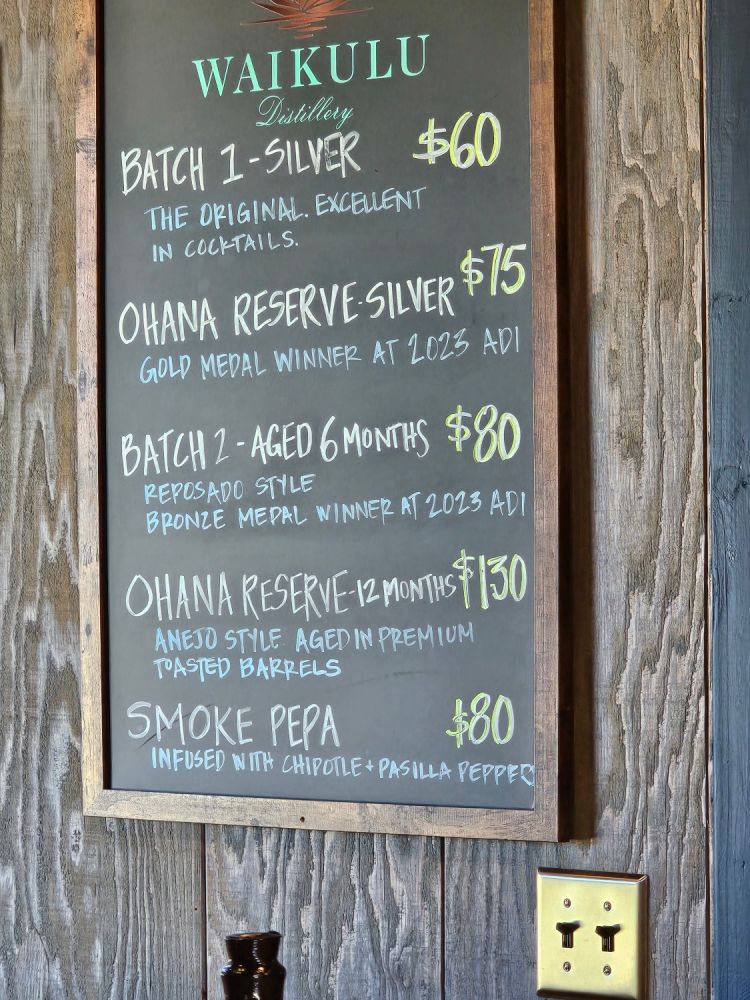 WAIKULU
Distillery
BATCH 1 - SILVER $60
THE ORIGINAL. EXCELLENT
IN COCKTAILS.
OHANA RESERVE - SILVER $75
GOLD MEDAL WINNER AT 2023 ADI
BATCH 2 - AGED 6 MONTHS $80
REPOSADO STYLE
BRONZE MEDAL WINNER AT 2023 ADI
OHANA RESERVE - 12 MONTHS $130
ANEJO STYLE AGED IN PREMIUM
TOASTED BARRELS
SMOKE PEPA $80
INFUSED WITH CHIPOTLE + PASILLA PEPPER